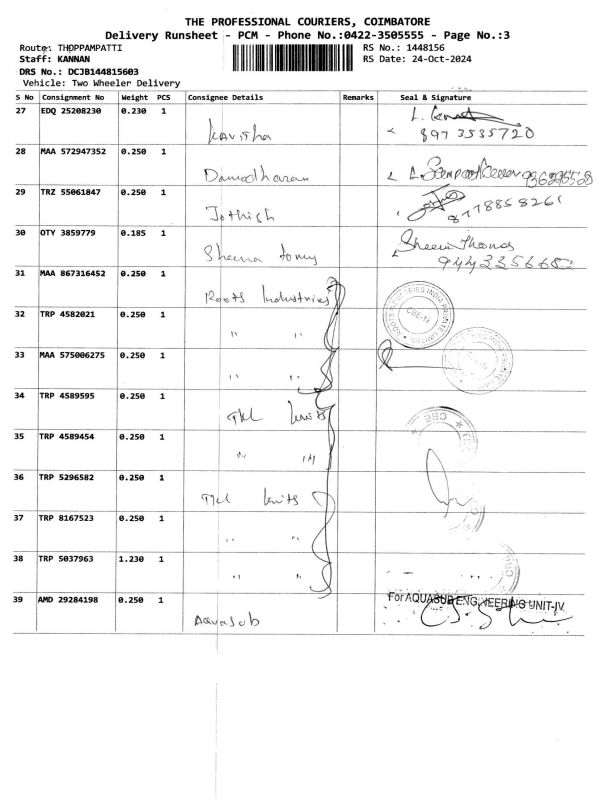 THE PROFESSIONAL COURIERS, COIMBATORE
Delivery Runsheet - PCM - Phone No.:0422-3505555 - Page No.:3
Route: THOPPAMPATTI RS No.: 1448156
Staff: KANNAN RS Date: 24-Oct-2024
DRS No.: DCJB144815603
Vehicle: Two Wheeler Delivery
S No Consignment No Weight PCS Consignee Details Remarks Seal & Signature
27 EDQ 25208230 0.230 1 Kavitha 8973535720
28 MAA 572947352 0.250 1 Damodharan
29 TRZ 55061847 0.250 1 Jothish 8778858261
30 OTY 3859779 0.185 1 Sheena tomy Sheena Thomas
31 MAA 867316452 0.250 1 Roots Industries
32 TRP 4582021 0.250 1 " "
33 MAA 575006275 0.250 1 " "
34 TRP 4589595 0.250 1
35 TRP 4589454 0.250 1 " "
36 TRP 5296582 0.250 1
37 TRP 8167523 0.250 1 " "
38 TRP 5037963 1.230 1 " "
39 AMD 29284198 0.250 1 Aquasub For AQUASUB ENGINEERING UNIT-IV